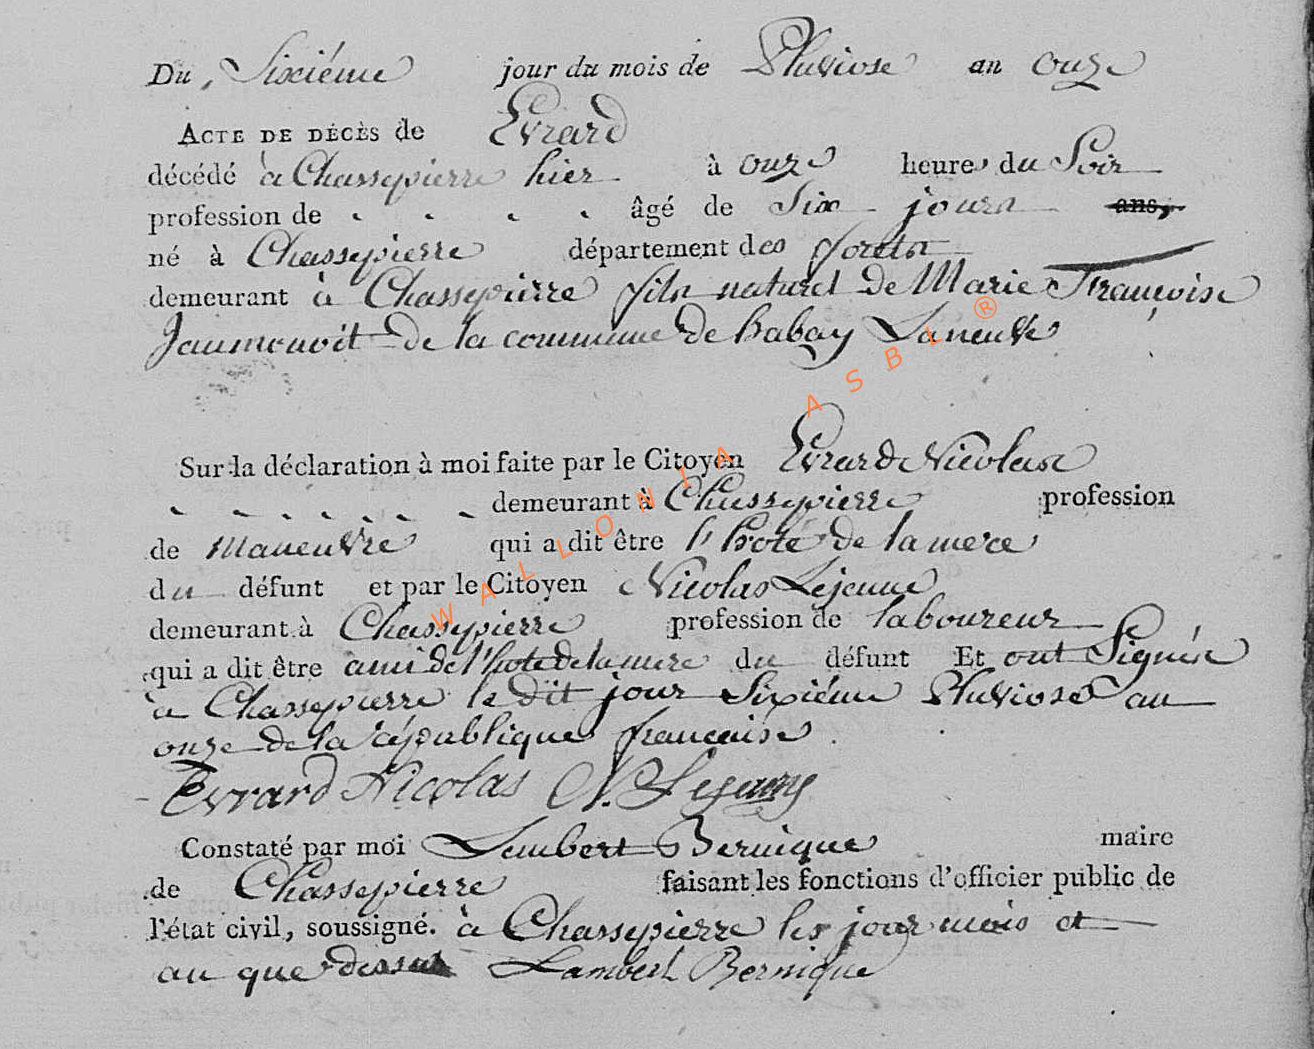 Du Sixiéme jour du mois de Pluviose an onze
ACTE DE DÉCÈS de Evrard
décédé à Chassepierre hier à onze heures du Soir
profession de âgé de Six jours ans,
né à Chassepierre département des forets
demeurant à Chassepierre fils naturel de Marie Françoise
Jaumonoit de la commune de habay Laneuve
Sur la déclaration à moi faite par le Citoyen Evrard Nicolas
demeurant à Chassepierre profession
de maneuvre qui a dit être l'hote de la mere
du défunt et par le Citoyen Nicolas Lejeune
demeurant à Chassepierre profession de laboureur
qui a dit être ami de l'hote de la mere du défunt Et ont Signés
à Chassepierre le dit jour Sixiéme Pluviose an
onze de la république francaise
Evrard Nicolas N. Lejeune
Constaté par moi Lambert Bernique maire
de Chassepierre faisant les fonctions d'officier public de
l'état civil, soussigné. à Chassepierre les jour mois et
an que dessus Lambert Bernique
WALLONIA ASBL ®